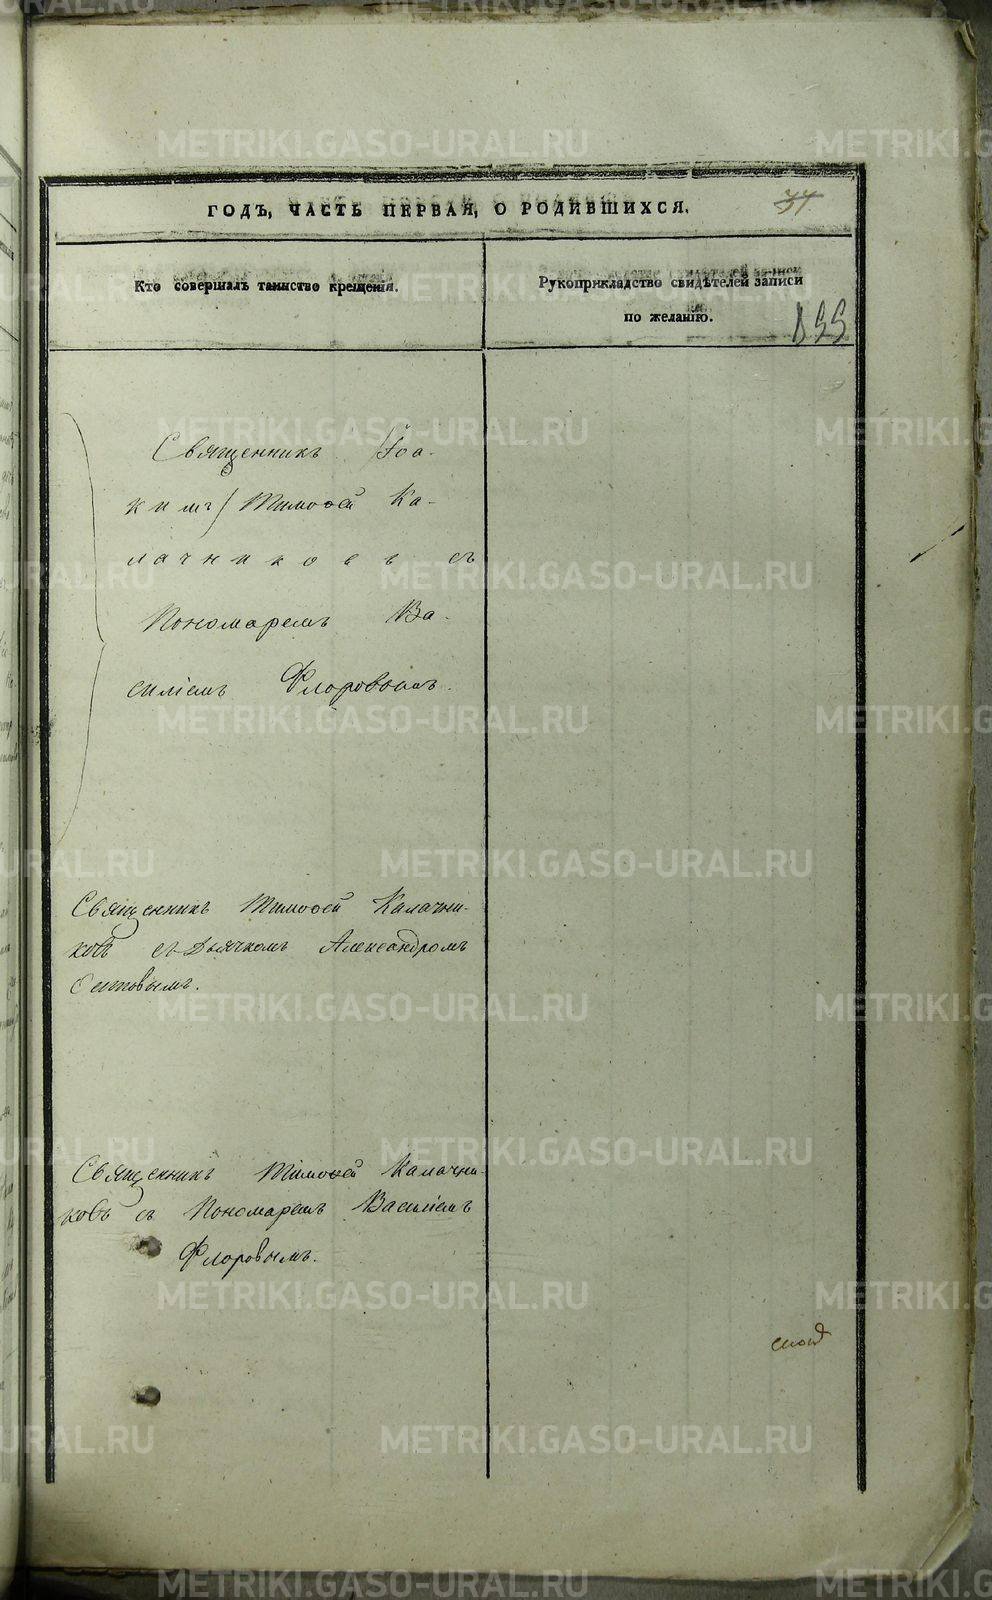 ГОДЪ, ЧАСТЬ ПЕРВАЯ, О РОДИВШИХСЯ.
Кто совершалъ таинство крещенія.
Рукоприкладство свидѣтелей записи
по желанію.
Священникъ /Іоа-
кимъ/ Тимоѳей Ка-
лачниковъ съ
Пономаремъ Ва-
силіемъ Флоровымъ.
Священникъ Тимоѳей Калачни-
ковъ съ Дьячкомъ Александромъ
Священникъ Тимоѳей Калачни-
ковъ съ Пономаремъ Василіемъ
Флоровымъ.
METRIKI.GASO-URAL.RU